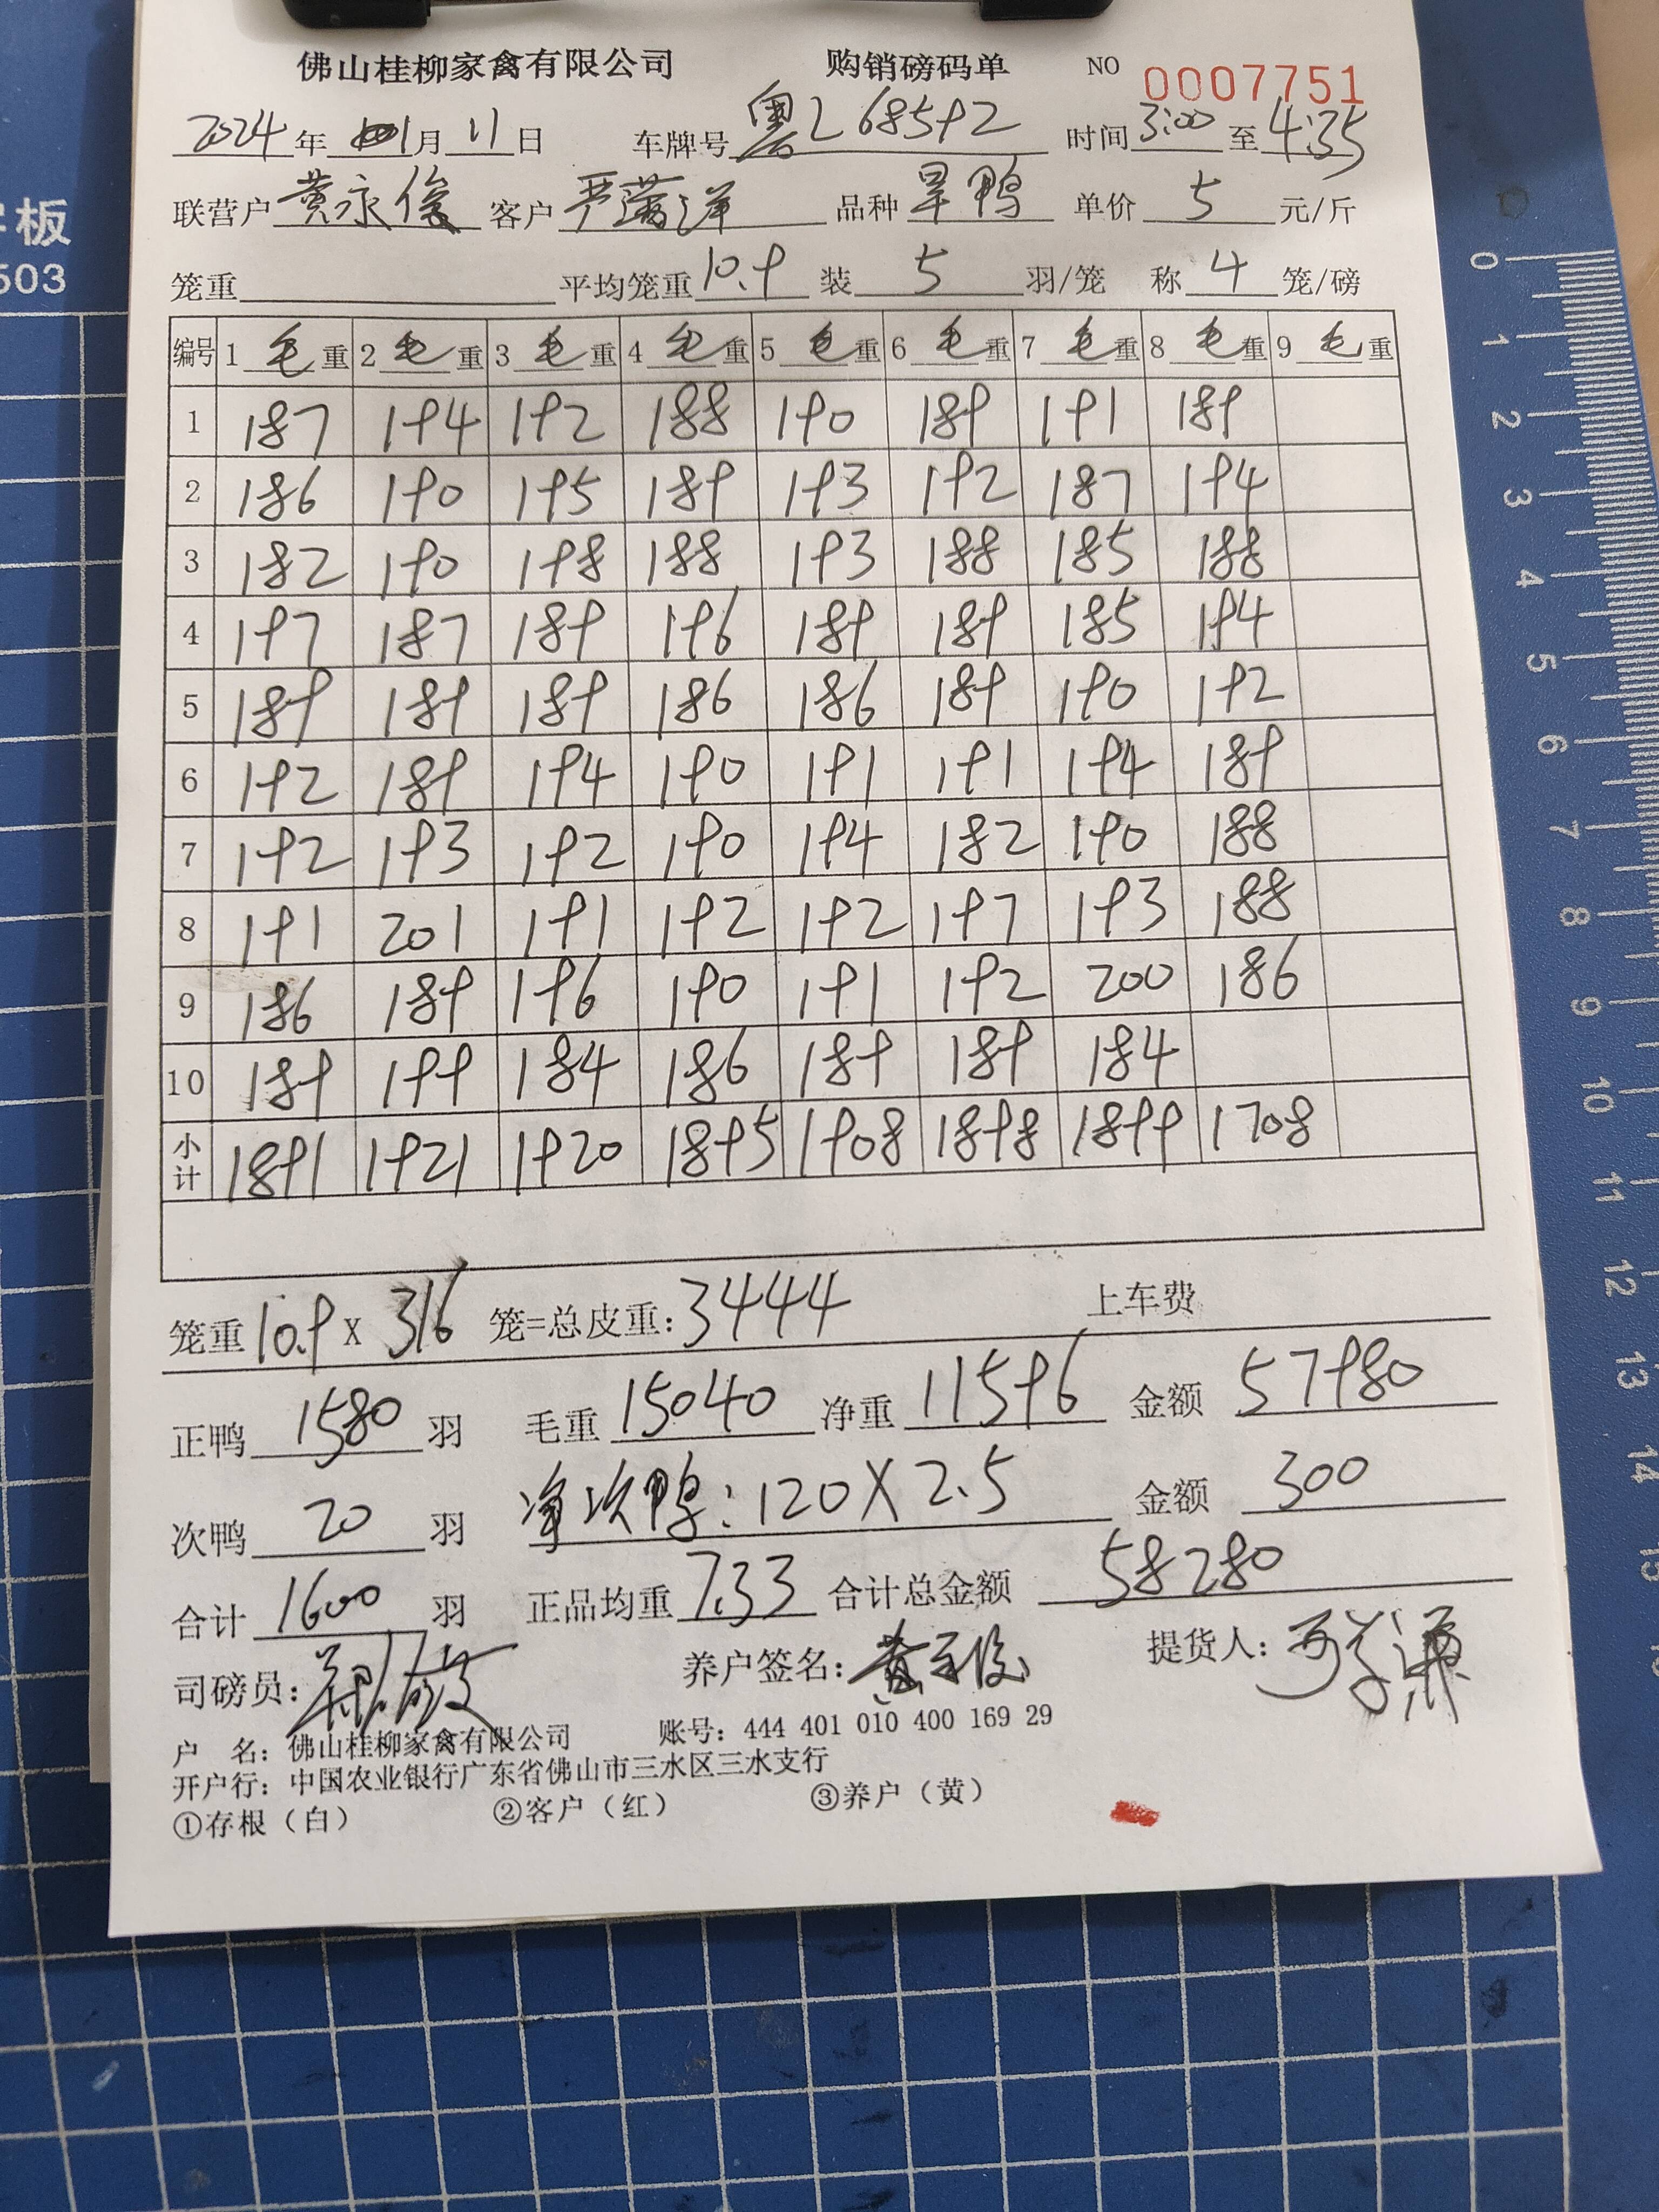 佛山桂柳家禽有限公司 购销磅码单 NO 0007751
2024年 月11日 车牌号粤L68592 时间3:00至4:35
联营户黄永俊 客户严满洋 品种旱鸭 单价5元/斤
笼重 平均笼重10.9 装5羽/笼 称4笼/磅
编号 1毛重 2毛重 3毛重 4毛重 5毛重 6毛重 7毛重 8毛重 9毛重
1 187 194 192 188 190 189 191 189
2 186 190 195 189 193 192 187 194
3 182 190 198 188 193 188 185 188
4 197 187 189 196 189 189 185 194
5 189 189 189 186 186 189 190 192
6 192 189 194 190 191 191 194 189
7 192 193 192 190 194 182 190 188
8 191 201 191 192 192 197 193 188
9 186 189 196 190 191 192 200 186
10 189 199 184 186 189 189 184
小计 1891 1921 1920 1895 1908 1898 1899 1708
笼重10.9X316笼=总皮重:3444 上车费
正鸭1580羽 毛重15040 净重11596 金额57980
次鸭20羽 净次鸭:120X2.5 金额300
合计1600羽 正品均重7.33 合计总金额58280
司磅员: 养户签名:黄永俊 提货人:
户 名:佛山桂柳家禽有限公司 账号:444 401 010 400 169 29
开户行:中国农业银行广东省佛山市三水区三水支行
①存根(白) ②客户(红) ③养户(黄)
字板
503
0
1
2
3
4
5
6
7
8
9
10
11
12
13
14
15
16